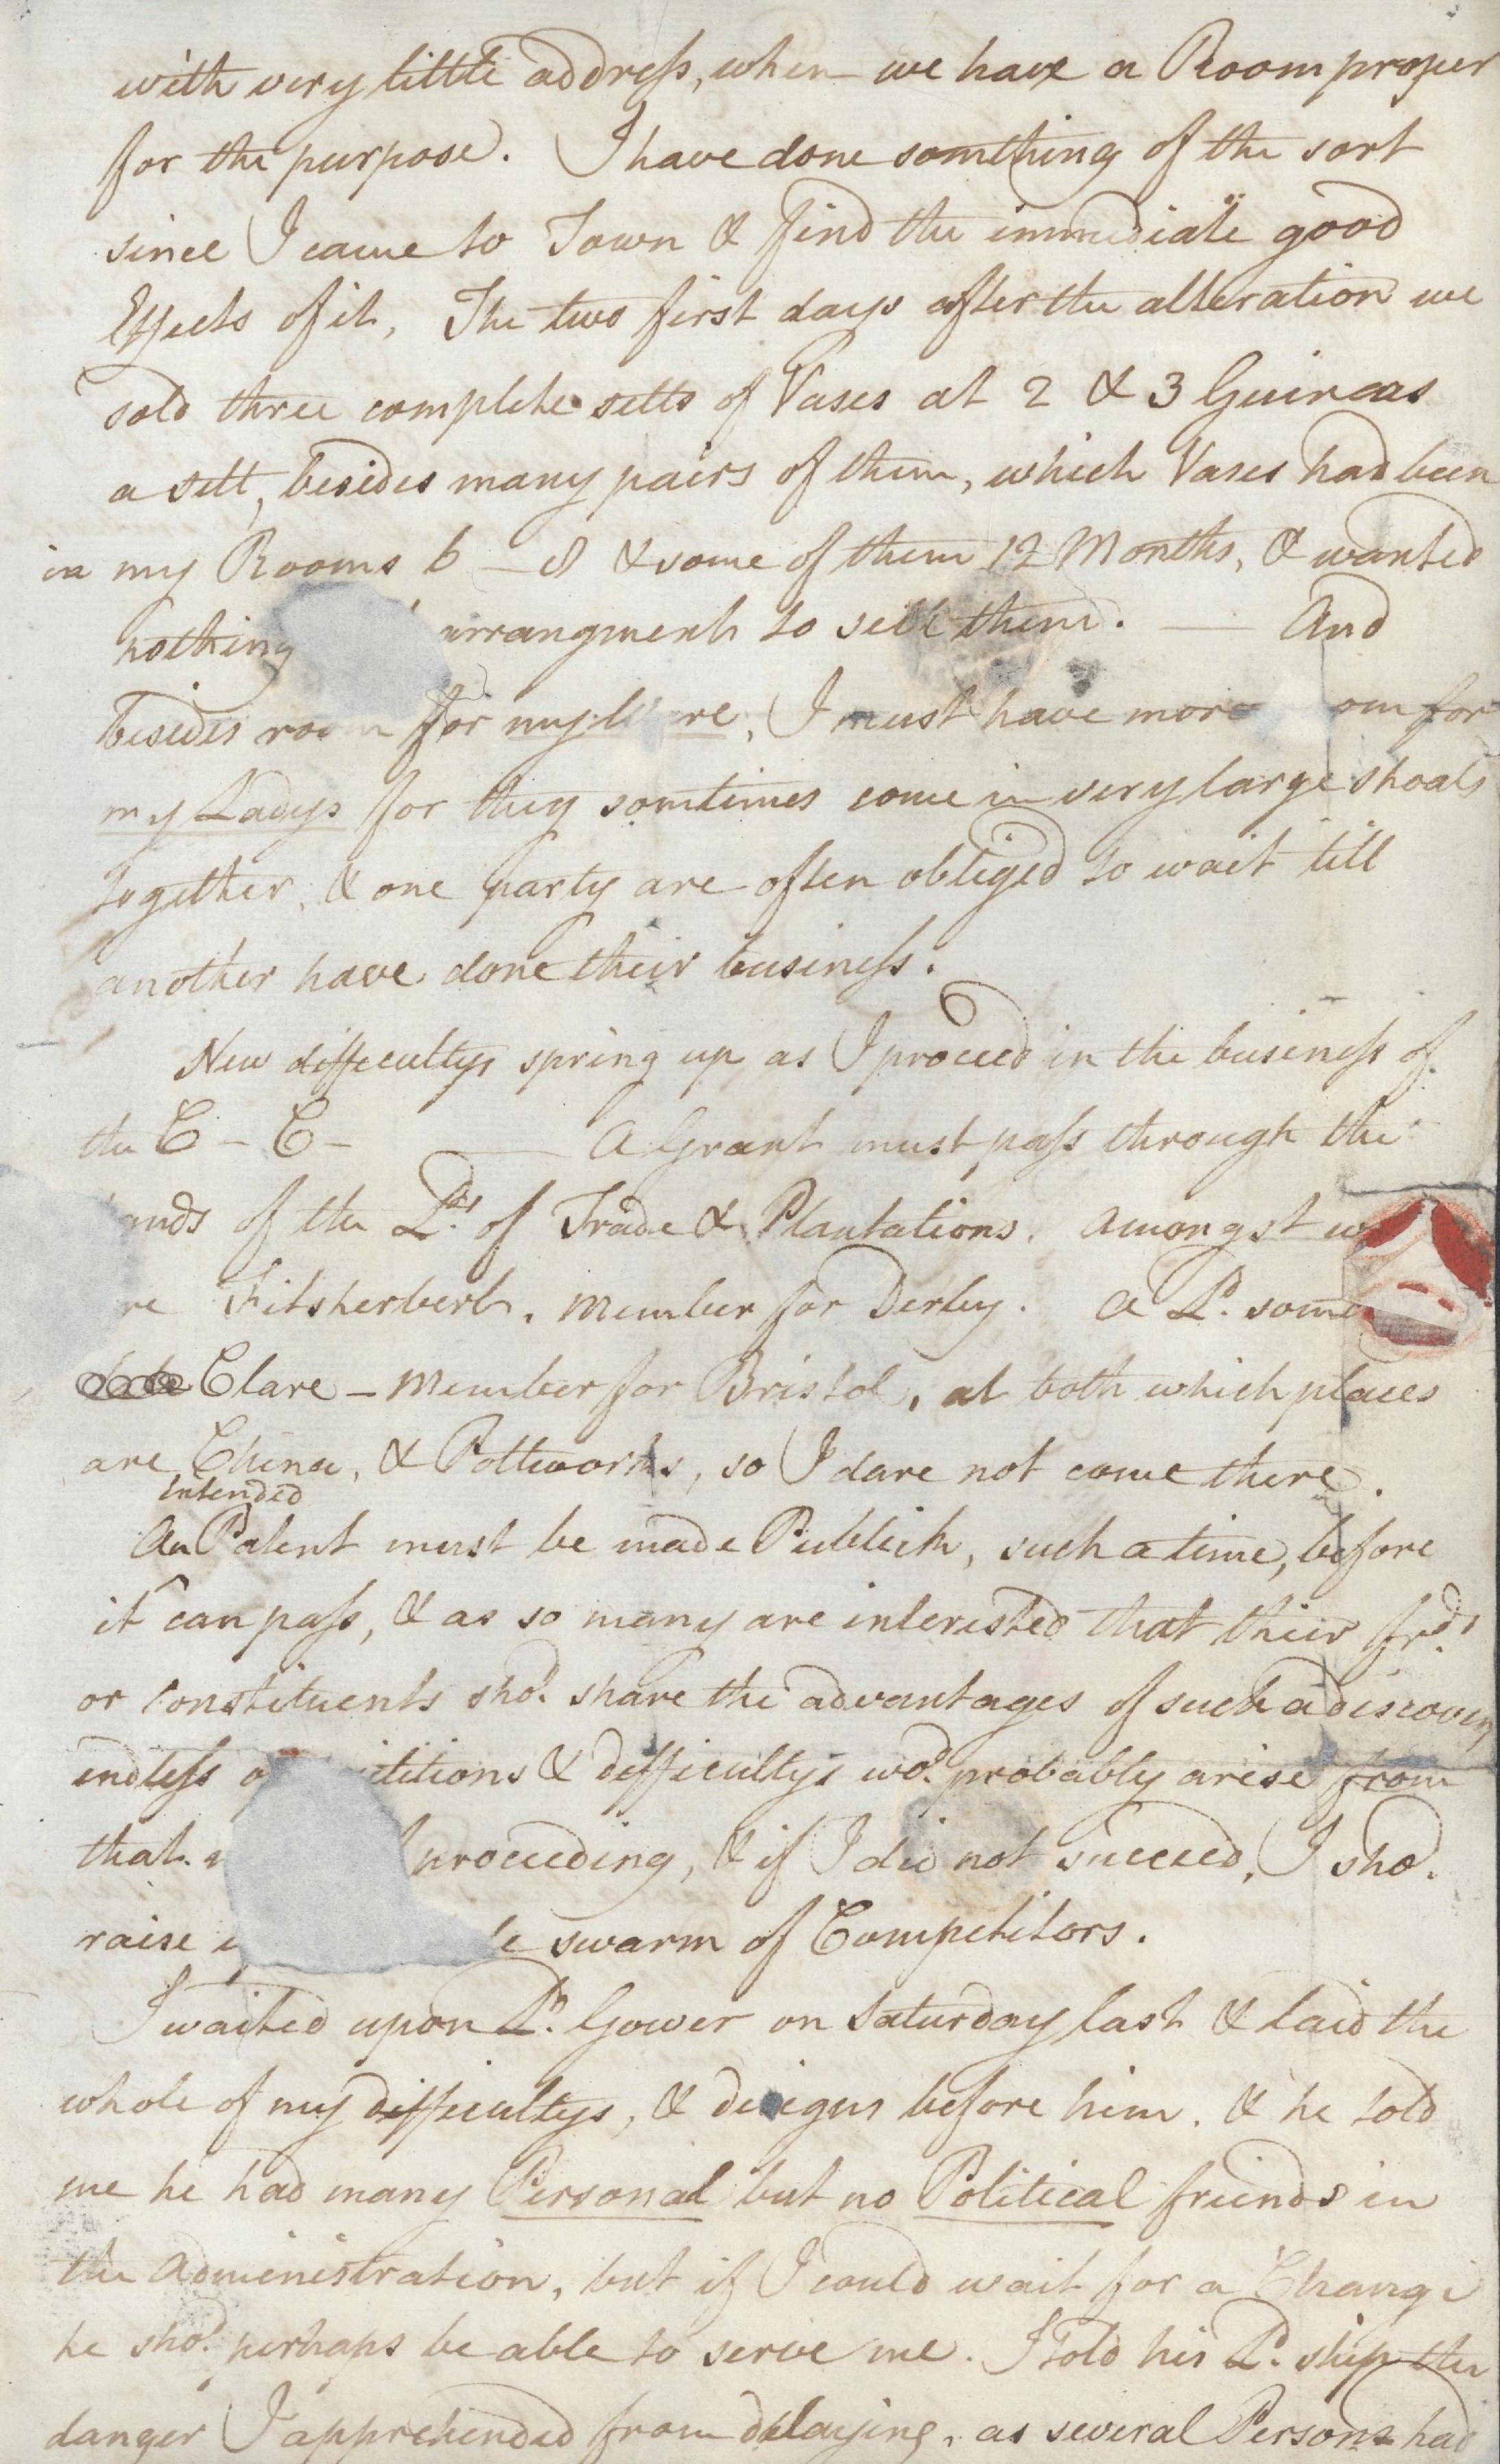 with very little address, when we have a Room proper
for the purpose. I have done somthing of the sort
since I came to Town & find the immediate good
Effects of it, The two first days after the alteration we
sold three complete setts of Vases at 2 & 3 Guineas
a sett, besides many pairs of them, which Vases had been
in my Rooms 6 – 8 & some of them 12 Months, & wanted
nothing arrangment to sell them. — And
besides room for my Ware, I must have more om for
my Ladys for they somtimes come in very large shoals
together, & one party are often obliged to wait till
another have done their business.
New difficultys spring up as I proceed in the business of
the C – C – — A Grant must pass through the
ands of the Lds. of Trade & Plantations. Amongst w
re Fitsherbert, Member for Derby. A Ld. some
Clare – Member for Bristol, at both which places
are China, & Pottworks, so I dare not come there.
Intended
An Patent must be made Publick, such a time, before
it can pass, & as so many are interested that their frds.
or constituents shod. share the advantages of such a discovery
endless o itions & difficultys wod. probably arise from
that proceeding, & if I did not succeed, I sho.
raise e swarm of Competitors.
I waited upon Ld. Gower on Saturday last & laid the
whole of my difficultys, & designs before him. & he told
me he had many Personal but no Political friends in
the Administration, but if I could wait for a Change
he shod. perhaps be able to serve me. I told his Ld. ship the
danger I apprehended from delaying, as several Persons had